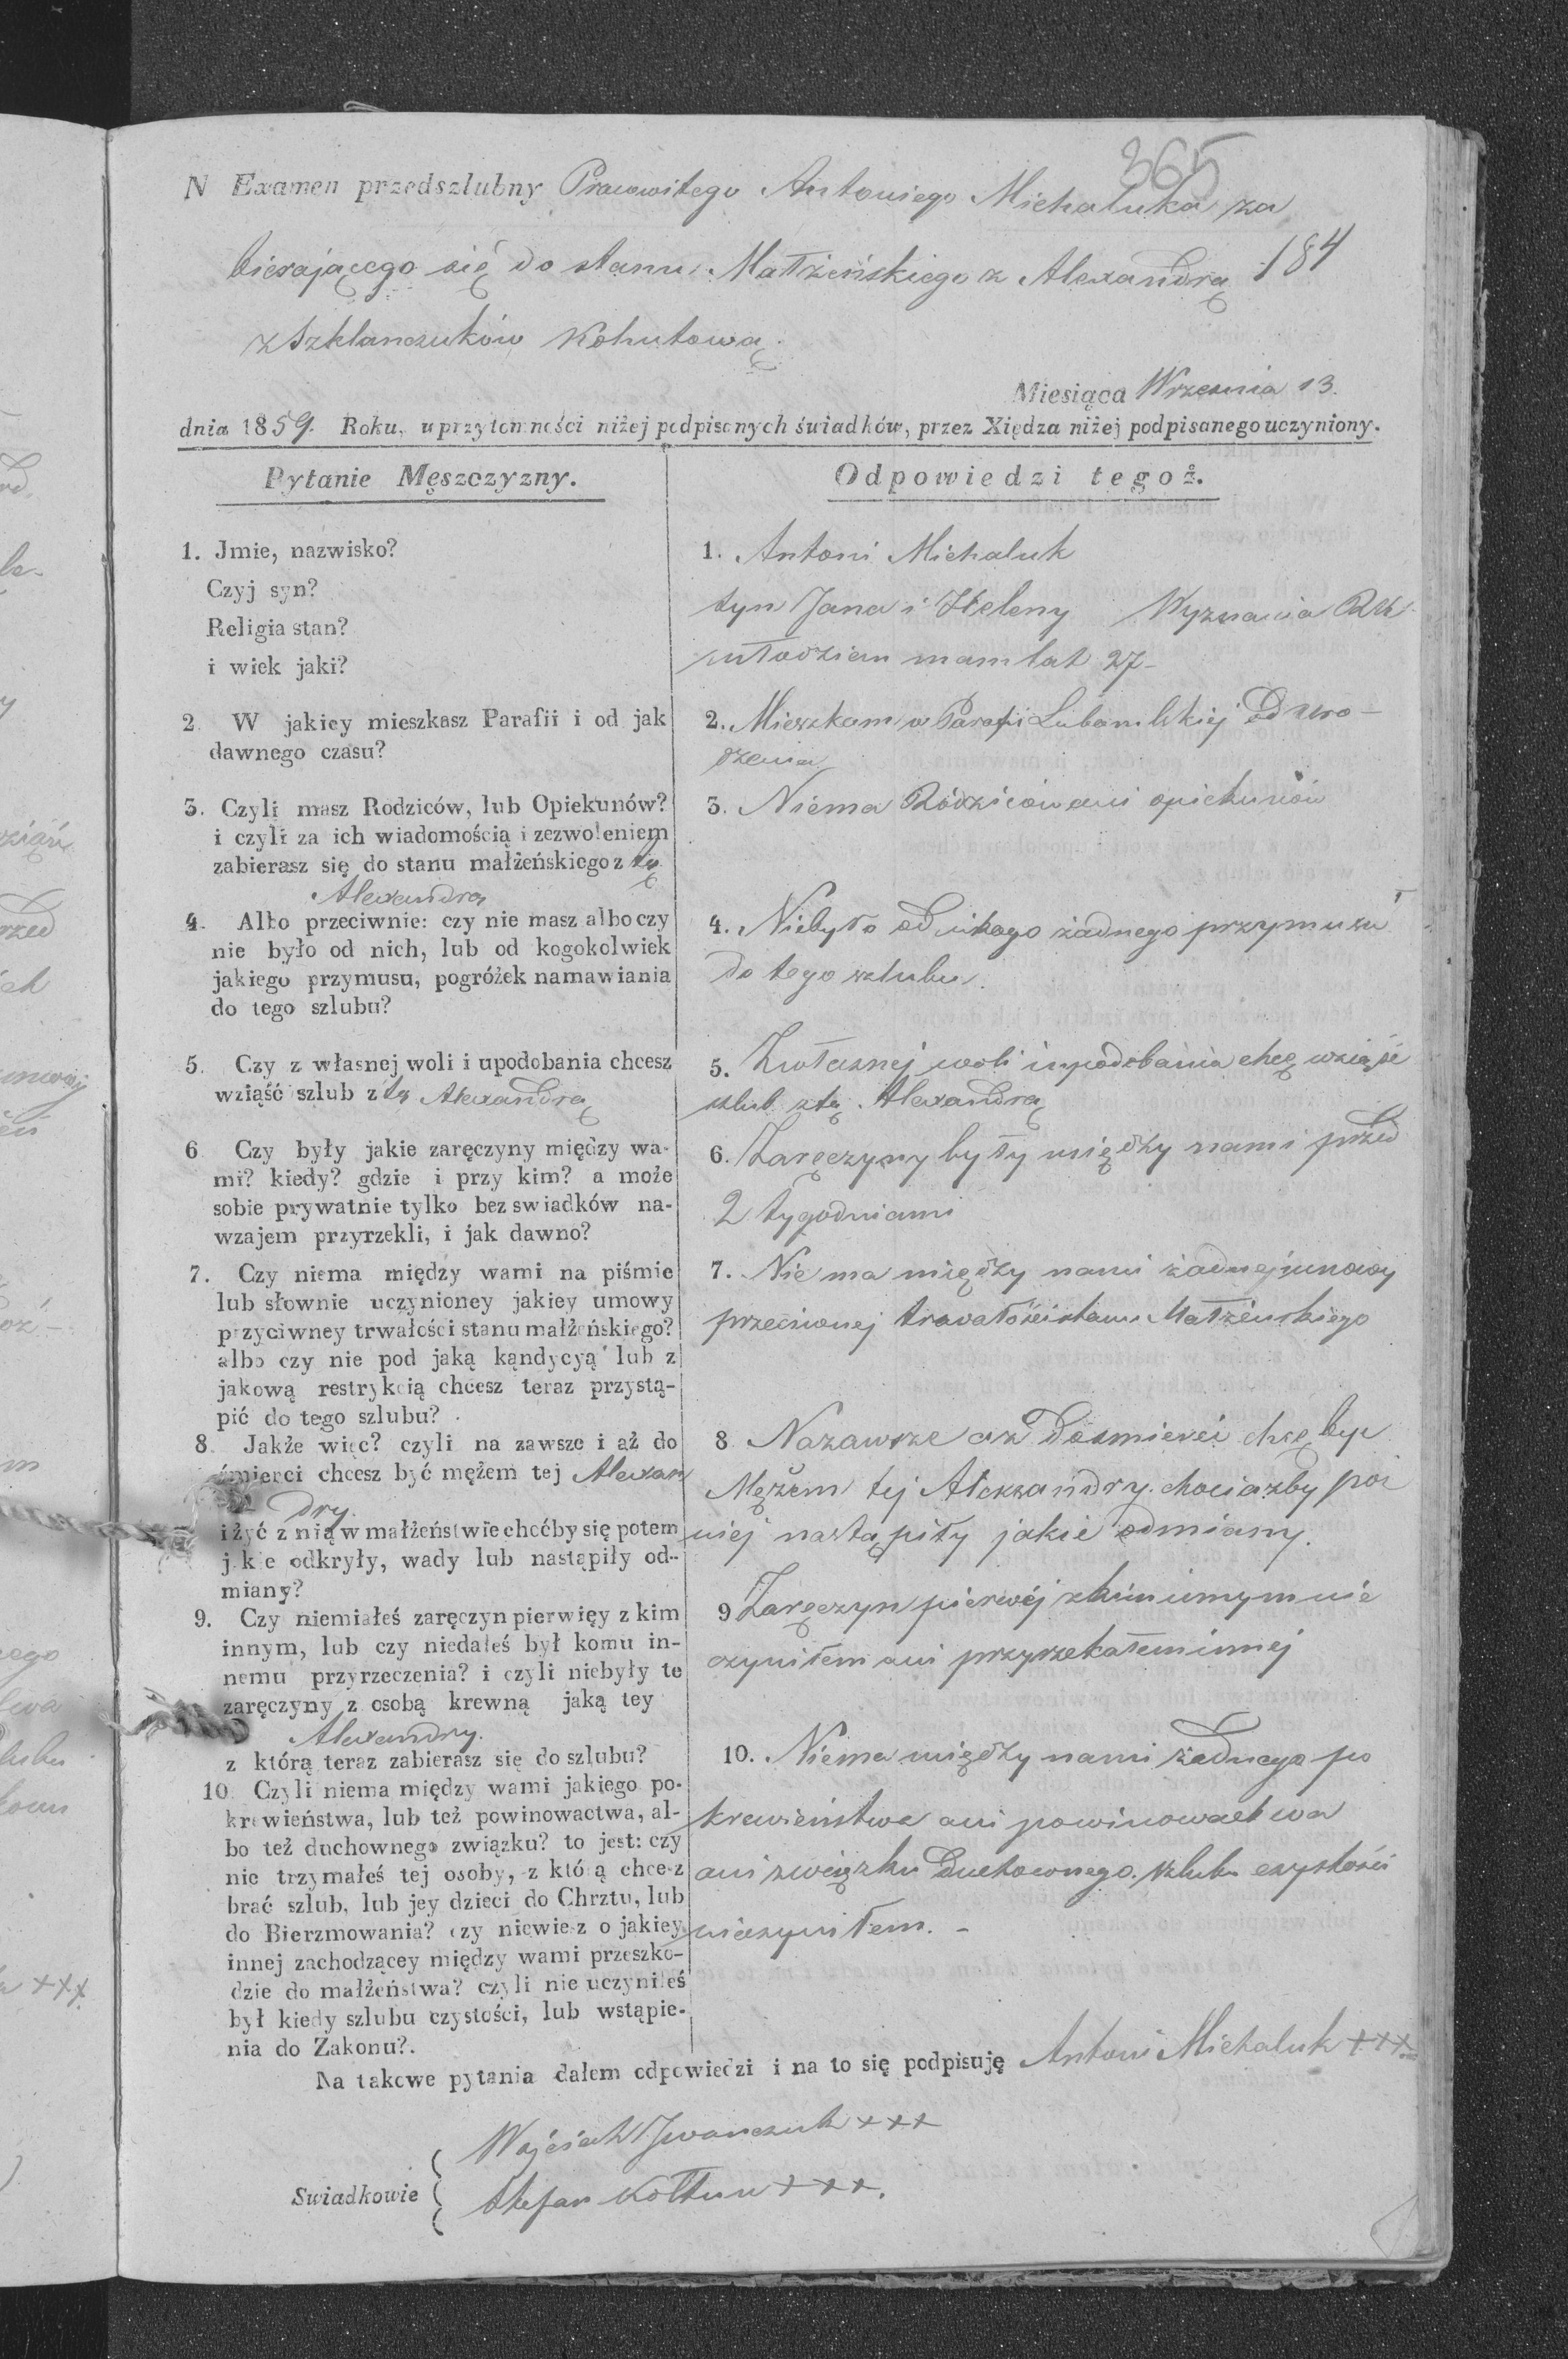 365
N Examen przedszlubny Pracowitego Antoniego Michaluka za
bierającego się do stanu Małżeńskiego z Alexandrą 184
z Szklanczuków Kohutową
Miesiąca Wrzesnia 13.
dnia 1859. Roku, uprzytomności niżej podpisanych świadków, przez Xiędza niżej podpisanego uczyniony.
Pytanie Męszczyzny.
1. Jmie, nazwisko?
Czyj syn?
Religia stan?
i wiek jaki?
2. W jakiey mieszkasz Parafii i od jak
dawnego czasu?
3. Czyli masz Rodziców, lub Opiekunów?
i czyli za ich wiadomością i zezwoleniem
zabierasz się do stanu małżeńskiego z tą
Alexandrą
4. Albo przeciwnie: czy nie masz albo czy
nie było od nich, lub od kogokolwiek
jakiego przymusu, pogróżek namawiania
do tego szlubu?
5. Czy z własnej woli i upodobania chcesz
wziąść szlub z tą Alexandrą
6. Czy były jakie zaręczyny między wa-
mi? kiedy? gdzie i przy kim? a może
sobie prywatnie tylko bez swiadków na-
wzajem przyrzekli, i jak dawno?
7. Czy niema między wami na piśmie
lub słownie uczynioney jakiey umowy
przyciwney trwałości stanu małżeńskiego?
albo czy nie pod jaką kąndycyą lub z
jakową restrykcią chcesz teraz przystą-
pić do tego szlubu?
8. Jakże więc? czyli na zawsze i aż do
śmierci chcesz być mężem tej Alexan
dry.
i żyć z nią w małżeństwie choćby się potem
jakie odkryły, wady lub nastąpiły od-
miany?
9. Czy niemiałeś zaręczyn pierwięy z kim
innym, lub czy niedałeś był komu in-
nemu przyrzeczenia? i czyli niebyły te
zaręczyny z osobą krewną jaką tey
Alexandry.
z którą teraz zabierasz się do szlubu?
10. Czyli niema między wami jakiego po-
krewieństwa, lub też powinowactwa, al-
bo też duchownego związku? to jest: czy
nie trzymałeś tej osoby, z którą chcesz
brać szlub, lub jey dzieci do Chrztu, lub
do Bierzmowania? czy niewiesz o jakiey
innej zachodzącey między wami przeszko-
dzie do małżeństwa? czyli nie uczyniłeś
był kiedy szlubu czystości, lub wstąpie-
nia do Zakonu?.
Odpowiedzi tegoż.
1. Antoni Michaluk
syn Jana i Heleny Wyznania RK
młodzian mam lat 27-
2. Mieszkam w Parafii od uro-
dzenia
3. Niema Rodziców ani opiekunów
4. Niebyło od nikogo żadnego przymusu
do tego szlubu.
5. Zwłasnej woli i upodobania chcę wziąść
szlub z tą Alexandrą
6. Zaręczyny były między nami przed
2 tygodniami
7. Nie ma między nami żadnej umowy
przeciwnej trwałości stanu Małżeńskiego
8. Nazawsze aż do śmierci chcę być
Mężem tej Alexandry. chociażby poź
niej nastąpiły jakie odmiany.
9 Zaręczyn pierwéj z kim innym nie
czyniłem ani przyrzekałem innej
10. Niema między nami żadnego po
krewieństwa ani powinowactwa
ani związku Duchownego. szlubu czystości
nieczyniłem. -
Na takowe pytania dałem odpowiedzi i na to się podpisuję Antoni Michaluk +++
Swiadkowie
Wojciech Iwanczuk +++
Stefan Kołtun +++.